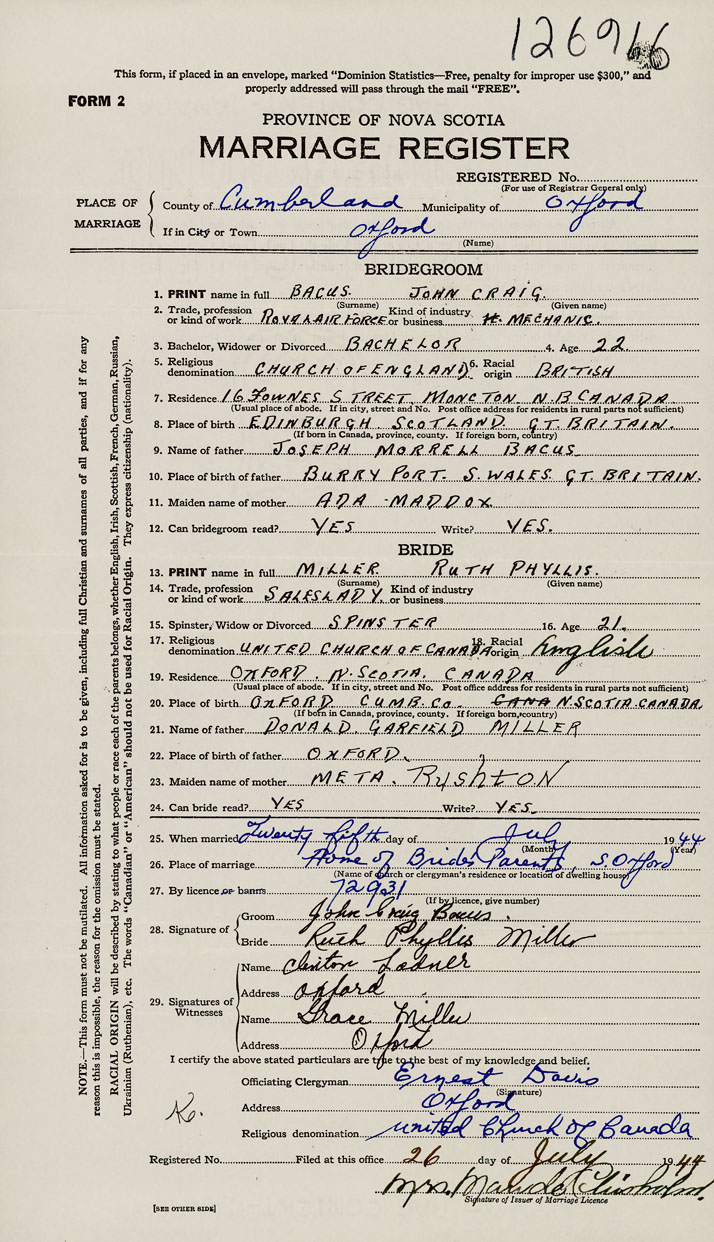 126916
This form, if placed in an envelope, marked "Dominion Statistics—Free, penalty for improper use $300," and
properly addressed will pass through the mail "FREE".
FORM 2
PROVINCE OF NOVA SCOTIA
MARRIAGE REGISTER
REGISTERED No.
(For use of Registrar General only)
PLACE OF MARRIAGE
County of Cumberland Municipality of Oxford
If in City or Town Oxford
(Name)
BRIDEGROOM
1. PRINT name in full BACUS. JOHN CRAIG.
(Surname) (Given name)
2. Trade, profession or kind of work ROYAL AIR FORCE Kind of industry or business MECHANIC.
3. Bachelor, Widower or Divorced BACHELOR 4. Age 22
5. Religious denomination CHURCH OF ENGLAND 6. Racial origin BRITISH
7. Residence 16 FOWNES STREET, MONCTON. N.B CANADA.
(Usual place of abode. If in city, street and No. Post office address for residents in rural parts not sufficient)
8. Place of birth EDINBURGH SCOTLAND GT. BRITAIN.
(If born in Canada, province, county. If foreign born, country)
9. Name of father JOSEPH MORRELL BACUS
10. Place of birth of father BURRY PORT. S. WALES. GT. BRITAIN.
11. Maiden name of mother ADA MADDOX
12. Can bridegroom read? YES Write? YES.
BRIDE
13. PRINT name in full MILLER. RUTH PHYLLIS.
(Surname) (Given name)
14. Trade, profession or kind of work SALESLADY Kind of industry or business
15. Spinster, Widow or Divorced SPINSTER 16. Age 21.
17. Religious denomination UNITED CHURCH OF CANADA 18. Racial origin English
19. Residence OXFORD. N. SCOTIA. CANADA
(Usual place of abode. If in city, street and No. Post office address for residents in rural parts not sufficient)
20. Place of birth OXFORD CUMB. CO. CANA N.SCOTIA.CANADA.
(If born in Canada, province, county. If foreign born, country)
21. Name of father DONALD GARFIELD MILLER
22. Place of birth of father OXFORD.
23. Maiden name of mother META. RUSHTON
24. Can bride read? YES Write? YES.
25. When married Twenty fifth day of July 1944
(Month) (Year)
26. Place of marriage Home of Brides Parents, S. Oxford
(Name of church or clergyman's residence or location of dwelling house)
27. By licence or banns 72931
(If by licence, give number)
28. Signature of
Groom John Craig Bacus.
Bride Ruth Phyllis Miller
29. Signatures of Witnesses
Name Clinton Ladner
Address Oxford
Name Grace Miller
Address Oxford
I certify the above stated particulars are true to the best of my knowledge and belief.
Officiating Clergyman Ernest Davis
(Signature)
Address Oxford
Religious denomination United Church of Canada
Registered No. Filed at this office 26 day of July 1944
Mrs. Maude Chisholm.
Signature of Issuer of Marriage Licence
[SEE OTHER SIDE]
NOTE.—This form must not be mutilated. All information asked for is to be given, including full Christian and surnames of all parties, and if for any
reason this is impossible, the reason for the omission must be stated.
RACIAL ORIGIN will be described by stating to what people or race each of the parents belongs, whether English, Irish, Scottish, French, German, Russian,
Ukrainian (Ruthenian), etc. The words "Canadian" or "American" should not be used for Racial Origin. They express citizenship (nationality).